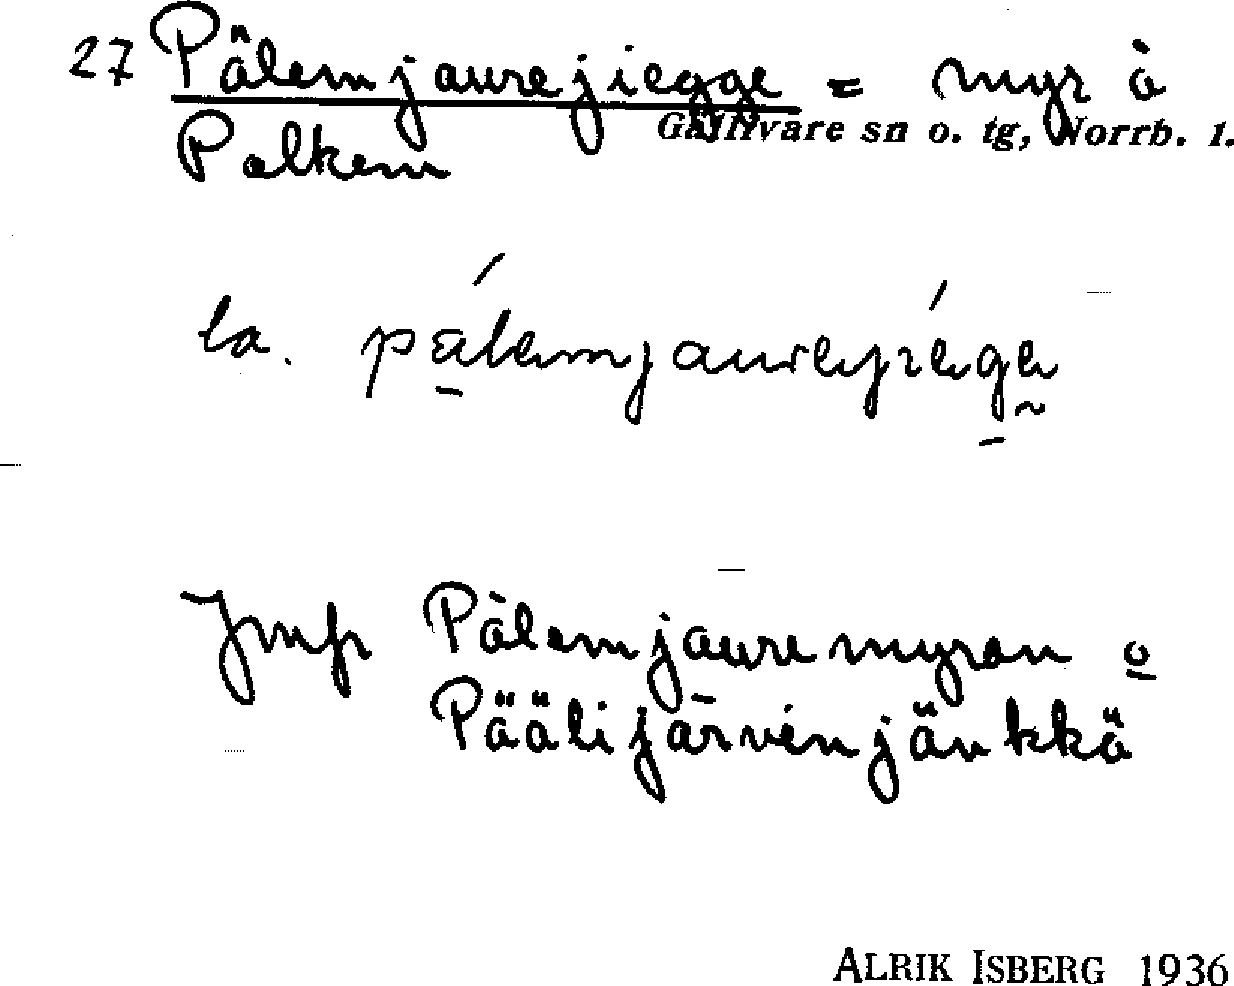 27 Pälemjaurejiegge = myr å
Gällivare sn o. tg, Norrb. l.
Palkem
la. pálemjaurejiege
Jmfr Pälemjauremyran o
Päälijärvenjänkkä
ALRIK ISBERG 1936